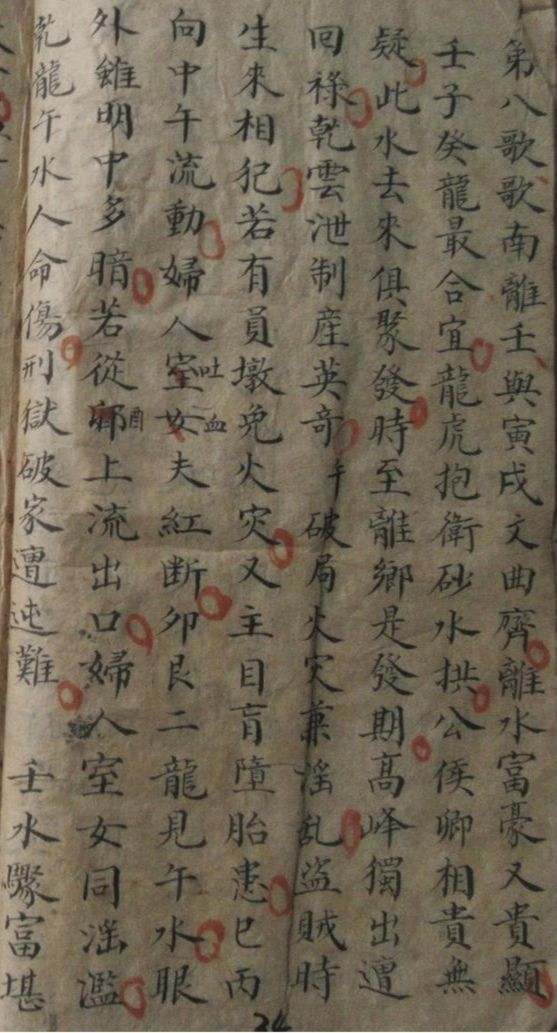 第八歌歌南離壬與寅戌文曲齊離水富豪又貴顯
壬子癸龍最合宜龍虎抱衛砂水拱公侯卿相貴無
疑此水去來俱聚發時至離鄉是發期高峰獨出遭
回祿乾雲泄制產英奇午破局火灾兼淫乱盜賊時
生來相犯若有員墩免火灾又主目盲墮胎患巳丙
向中午流動婦人室女夫紅断卯艮二龍見午水眼
吐血
外雖明中多暗若從上流出口婦人室女同淫濫
酉
乾龍午水人命傷刑獄破家遭迍難 壬水驟富堪
34